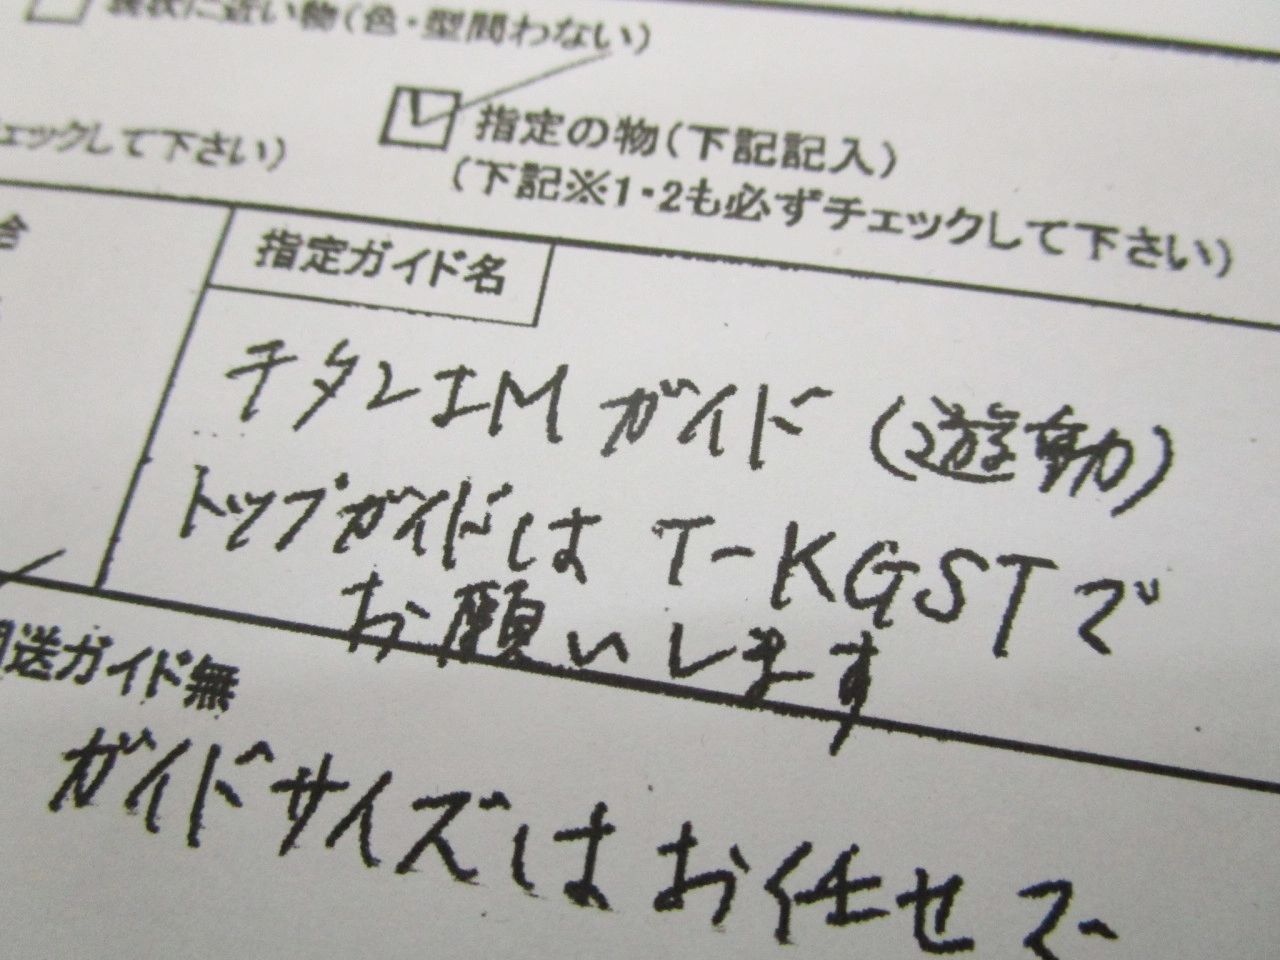 現状に近い物(色・型問わない)
指定の物(下記記入)
ェックして下さい)
(下記※1・2も必ずチェックして下さい)
指定ガイド名
チタンIMガイド(遊動)
トップガイドは T-KGSTで
お願いします
送ガイド無
ガイドサイズはお任せで